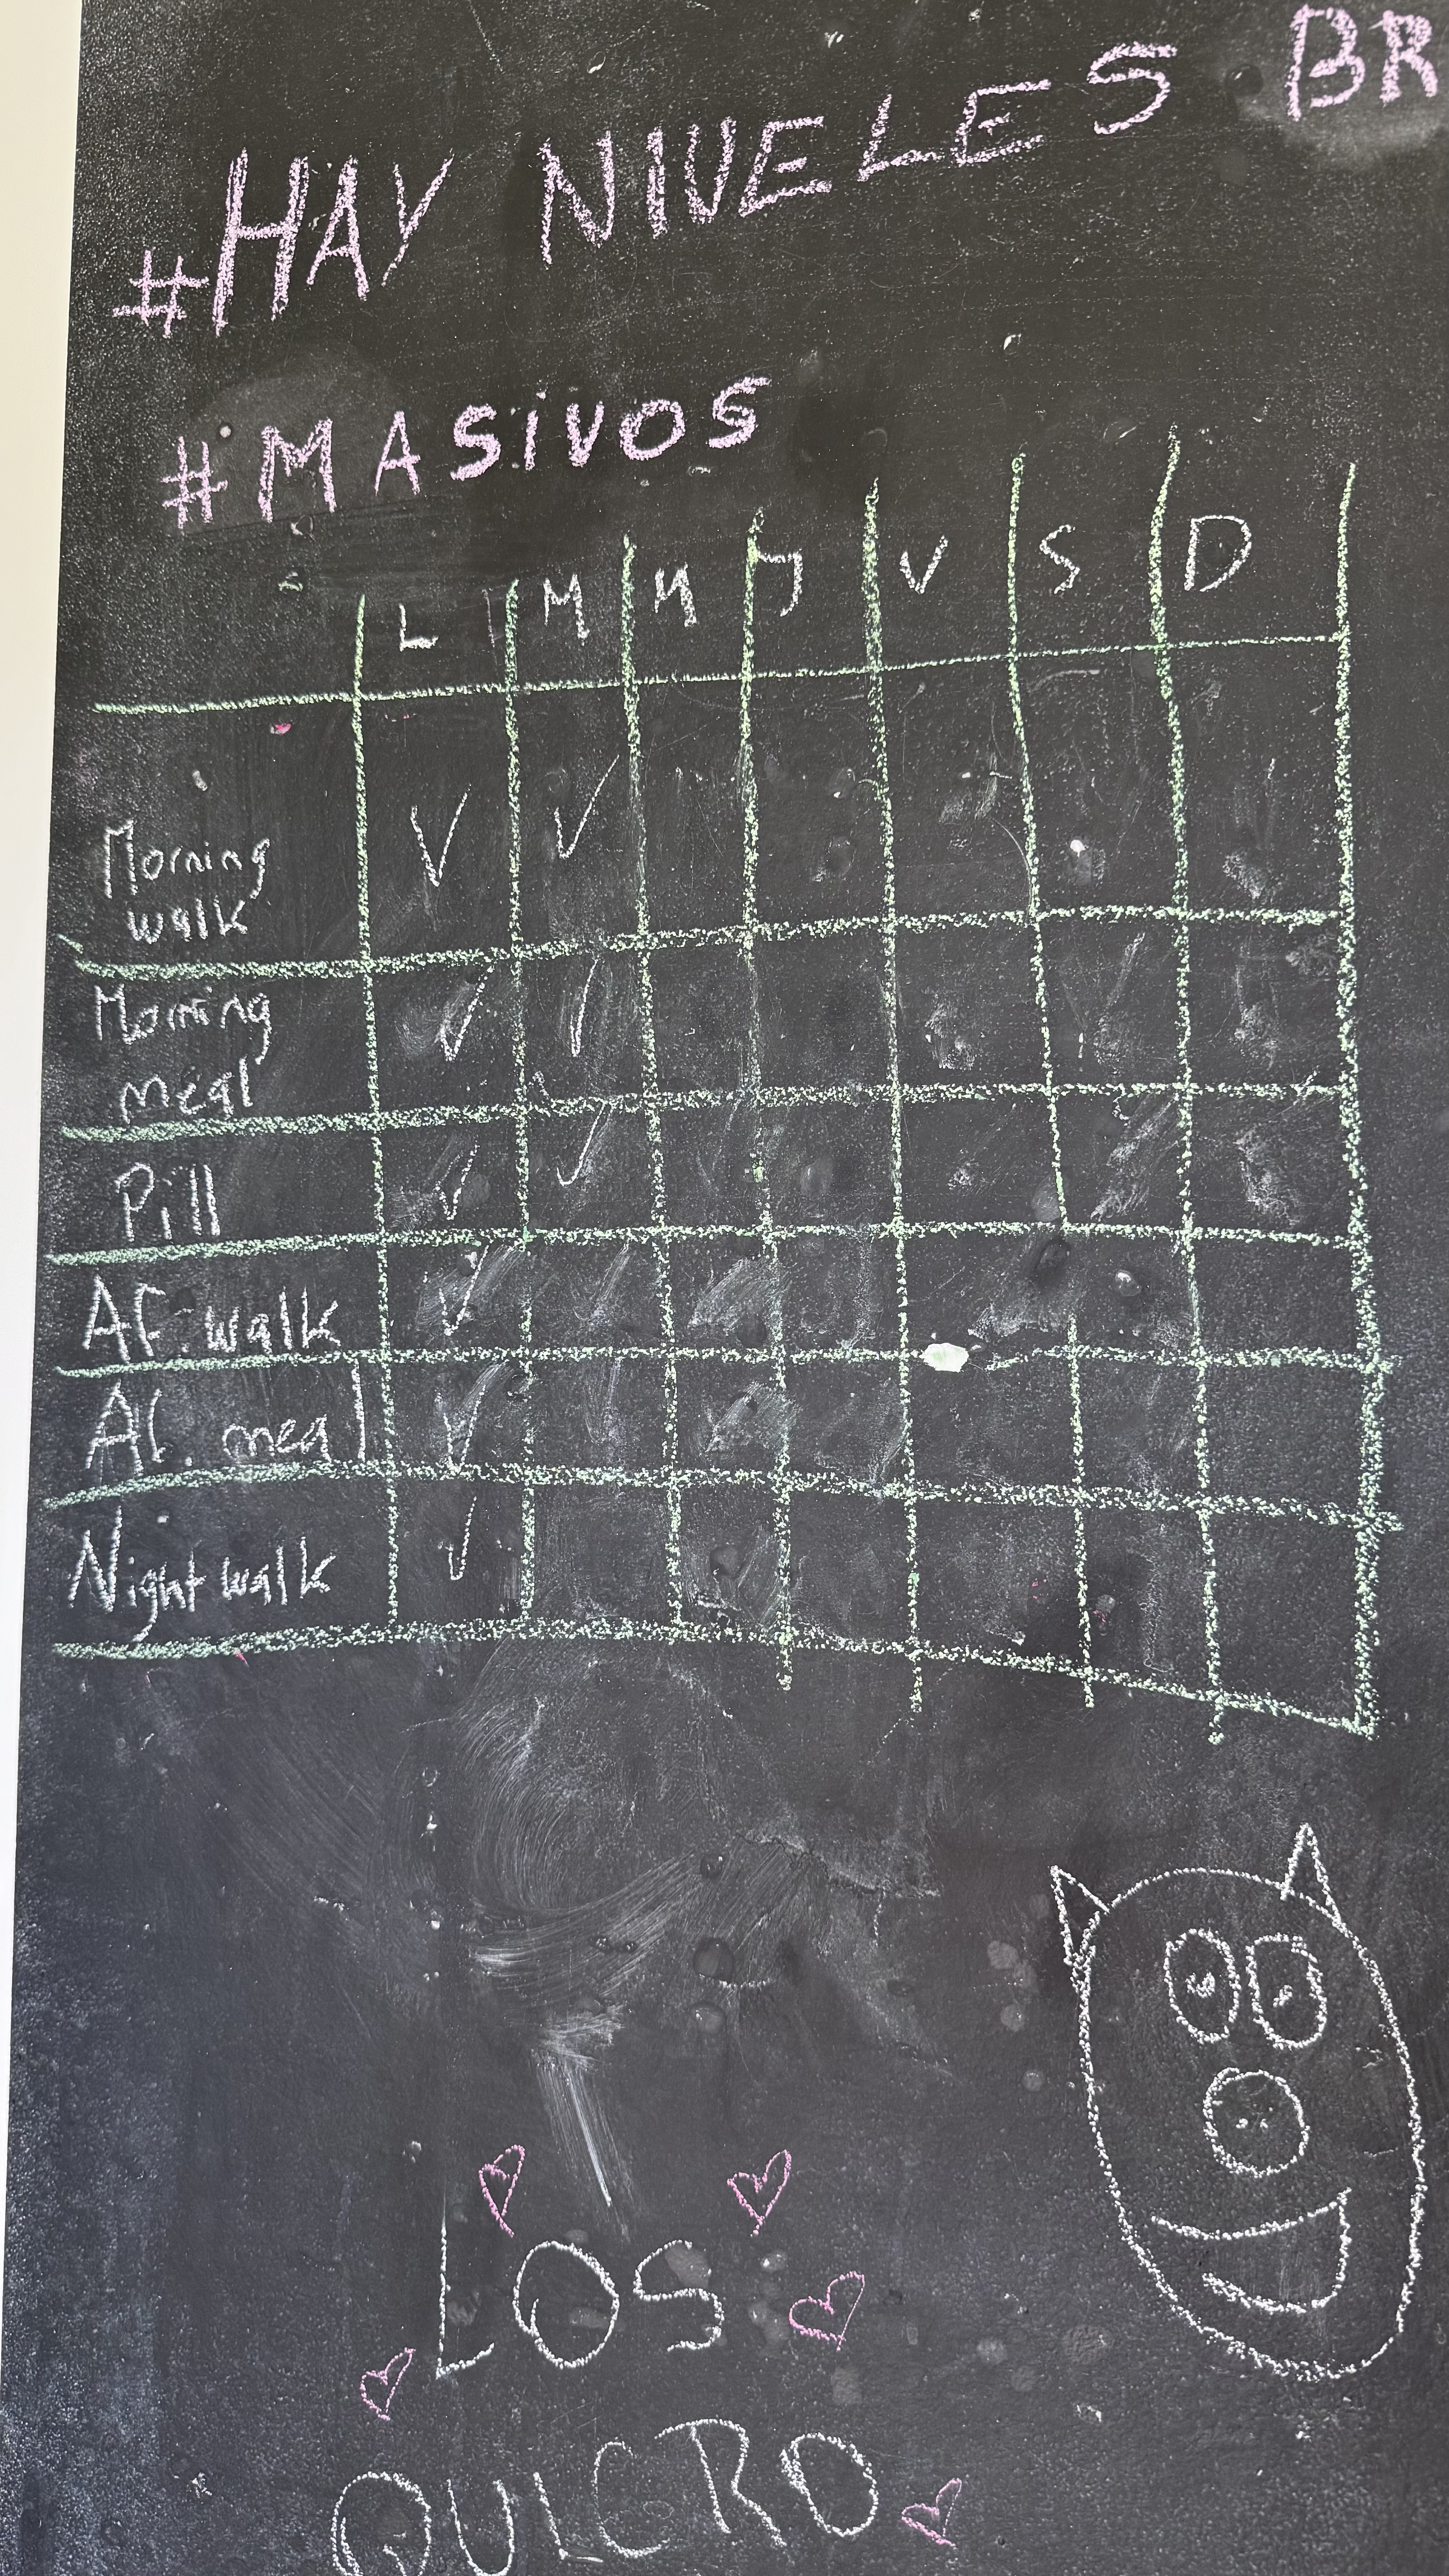 #HAY NIVELES BR
#MASIVOS
L M M J V S D
Morning walk ✓ ✓
Morning meal ✓ ✓
Pill ✓ ✓
Af. walk ✓
Af. meal ✓
Night walk ✓
LOS
QUIERO